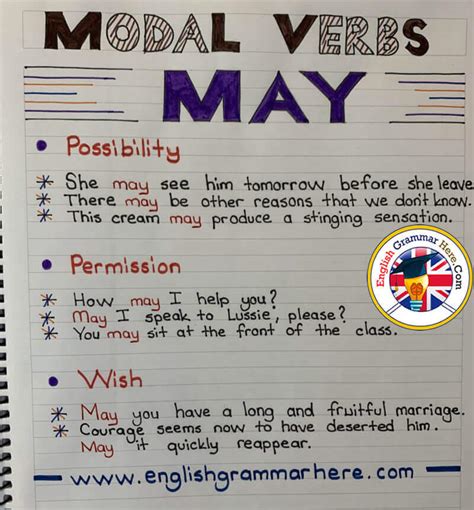 MODAL VERBS
MAY
• Possibility
* She may see him tomorrow before she leave
* There may be other reasons that we don't know.
* This cream may produce a stinging sensation.
English Grammar Here.Com
• Permission
* How may I help you?
* May I speak to Lussie', please?
* You may sit at the front of the class.
• Wish
* May you have a long and fruitful marriage.
* Courage seems now to have deserted him.
May it quickly reappear.
www.englishgrammarhere.com